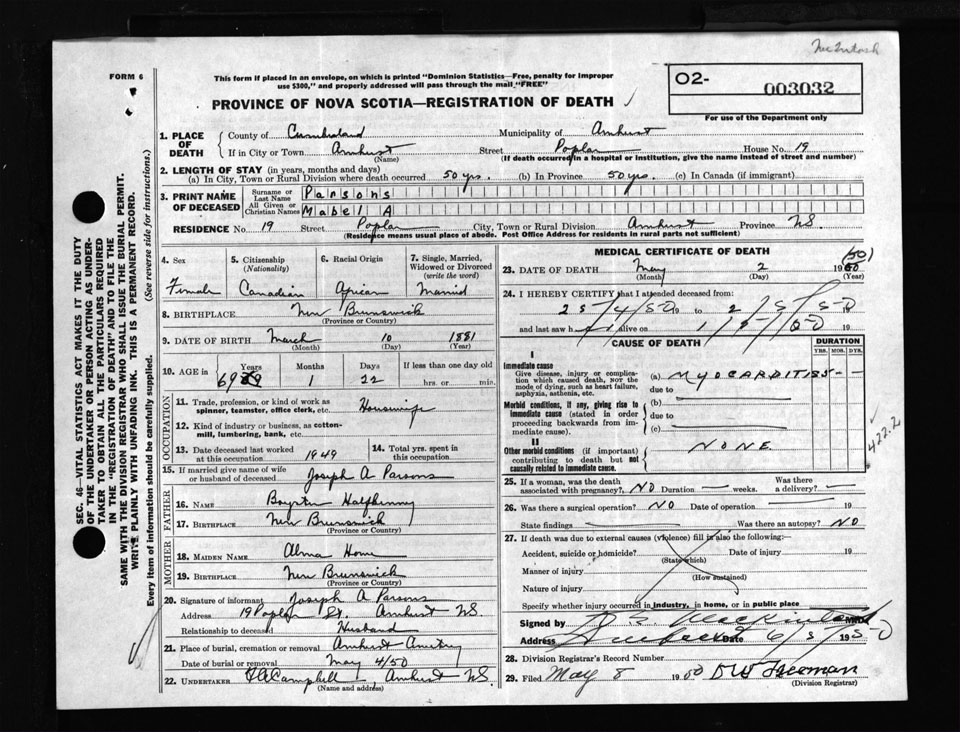 McIntosh
FORM 6
This form if placed in an envelope, on which is printed "Dominion Statistics—Free, penalty for improper
use $300," and properly addressed will pass through the mail "FREE"
PROVINCE OF NOVA SCOTIA—REGISTRATION OF DEATH
O2- 003032
For use of the Department only
SEC. 46—VITAL STATISTICS ACT MAKES IT THE DUTY
OF THE UNDERTAKER OR PERSON ACTING AS UNDER-
TAKER TO OBTAIN ALL THE PARTICULARS REQUIRED
IN THE "REGISTRATION OF DEATH" AND TO FILE THE
SAME WITH THE DIVISION REGISTRAR WHO SHALL ISSUE THE BURIAL PERMIT.
WRITE PLAINLY WITH UNFADING INK. THIS IS A PERMANENT RECORD.
Every item of information should be carefully supplied. (See reverse side for instructions.)
1. PLACE OF DEATH
County of Cumberland Municipality of Amherst
If in City or Town Amherst Street Poplar House No. 19
(Name) (If death occurred in a hospital or institution, give the name instead of street and number)
2. LENGTH OF STAY (in years, months and days)
(a) In City, Town or Rural Division where death occurred 50 yrs. (b) In Province 50 yrs. (c) In Canada (if immigrant)
3. PRINT NAME OF DECEASED
Surname or Last Name Parsons
All Given or Christian Names Mabel A
RESIDENCE No. 19 Street Poplar City, Town or Rural Division Amherst Province NS
(Residence means usual place of abode. Post Office Address for residents in rural parts not sufficient)
4. Sex 5. Citizenship (Nationality) 6. Racial Origin 7. Single, Married, Widowed or Divorced (write the word)
Female Canadian African Married
8. BIRTHPLACE New Brunswick
(Province or Country)
9. DATE OF BIRTH March 10 1881
(Month) (Day) (Year)
10. AGE in Years Months Days If less than one day old
69 1 22 hrs. or min.
OCCUPATION
11. Trade, profession, or kind of work as
spinner, teamster, office clerk, etc. Housewife
12. Kind of industry or business, as cotton-
mill, lumbering, bank, etc.
13. Date deceased last worked at this occupation 1949 14. Total yrs. spent in this occupation
15. If married give name of wife
or husband of deceased Joseph A Parsons
FATHER
16. NAME Halfkenny
17. BIRTHPLACE New Brunswick
(Province or Country)
MOTHER
18. MAIDEN NAME Alma
19. BIRTHPLACE New Brunswick
(Province or Country)
20. Signature of informant Joseph A Parsons
Address 19 Poplar St. Amherst NS.
Relationship to deceased Husband
21. Place of burial, cremation or removal Amherst
Date of burial or removal May 4/50
22. UNDERTAKER Campbell, Amherst NS.
(Name and address)
MEDICAL CERTIFICATE OF DEATH
23. DATE OF DEATH May 2 19 (50)
(Month) (Day) (Year)
24. I HEREBY CERTIFY that I attended deceased from:
25/4/50 19 to 2/5/50
and last saw h alive on 1/5/50 19
CAUSE OF DEATH DURATION
YRS. MOS. DYS.
I
Immediate cause
Give disease, injury or compli-
cation which caused death, NOT the
mode of dying, such as heart failure,
asphyxia, asthenia, etc.
(a) MYOCARDITIS
due to
Morbid conditions, if any, giving rise to
immediate cause (stated in order
proceeding backwards from im-
mediate cause).
(b)
due to
(c)
II
Other morbid conditions (if important)
contributing to death but not
causally related to immediate cause.
NONE
422.2
25. If a woman, was the death
associated with pregnancy? NO Duration — weeks. Was there a delivery? —
26. Was there a surgical operation? NO Date of operation 19
State findings Was there an autopsy? NO
27. If death was due to external causes (violence) fill in also the following:—
Accident, suicide or homicide? Date of injury 19
(State which)
Manner of injury
(How sustained)
Nature of injury
Specify whether injury occurred in industry, in home, or in public place
Signed by Mackintosh M.D.
Address Date 6/5/1950
28. Division Registrar's Record Number
29. Filed May 8 1950 Freeman
(Division Registrar)